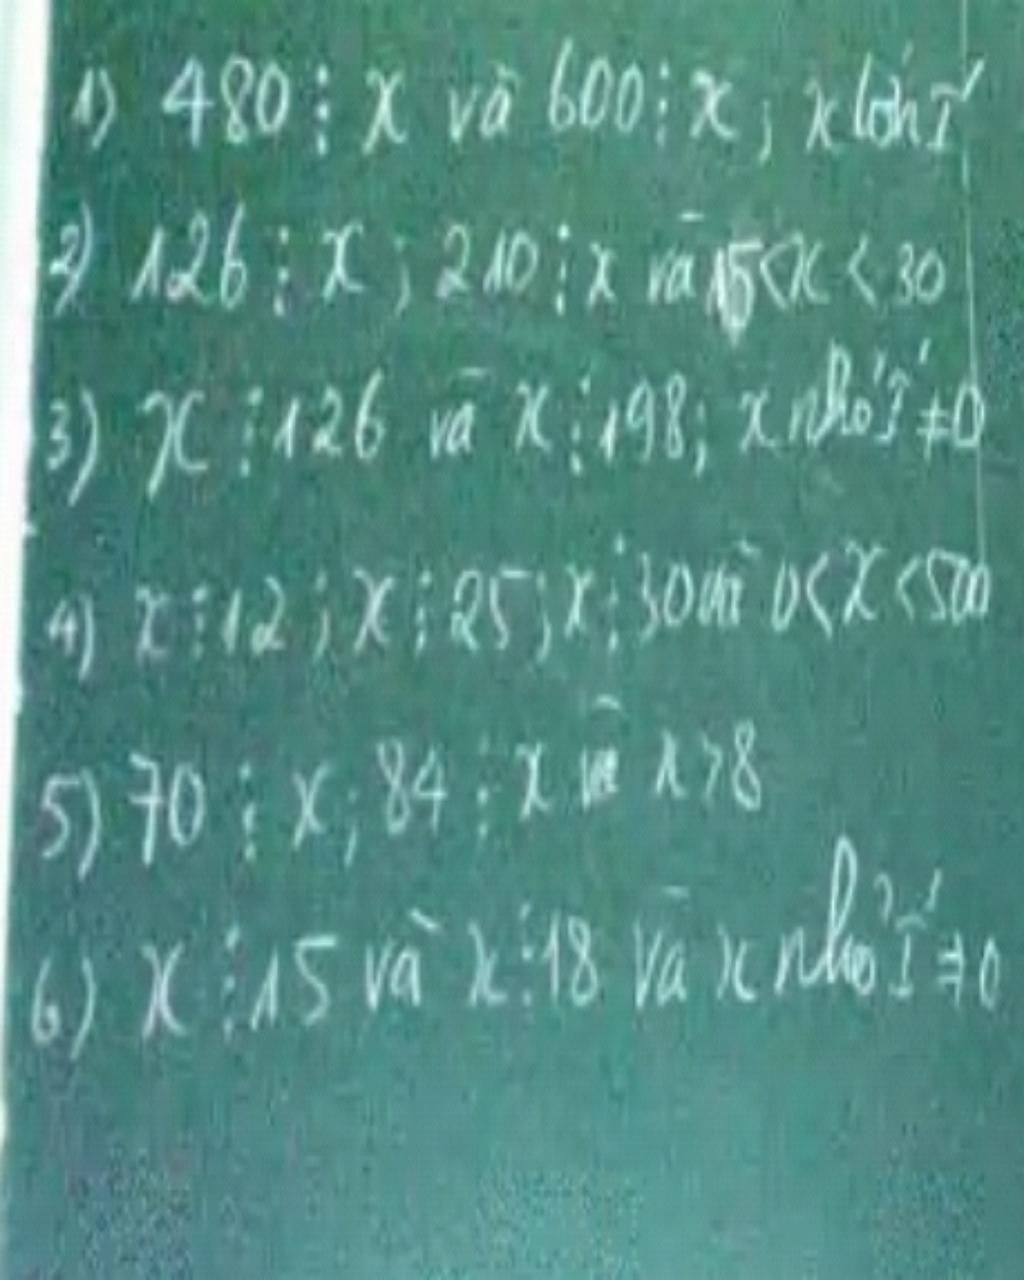 1) 480 ⋮ x và 600 ⋮ x ; x lớn I'
2) 126 ⋮ x ; 210 ⋮ x và 15 < x < 30
3) x ⋮ 126 và x ⋮ 198 ; x nhỏ I' ≠ 0
4) x ⋮ 12 ; x ⋮ 25 ; x ⋮ 30 và 0 < x < 500
5) 70 ⋮ x ; 84 ⋮ x và x > 8
6) x ⋮ 15 và x ⋮ 18 và x nhỏ I' ≠ 0